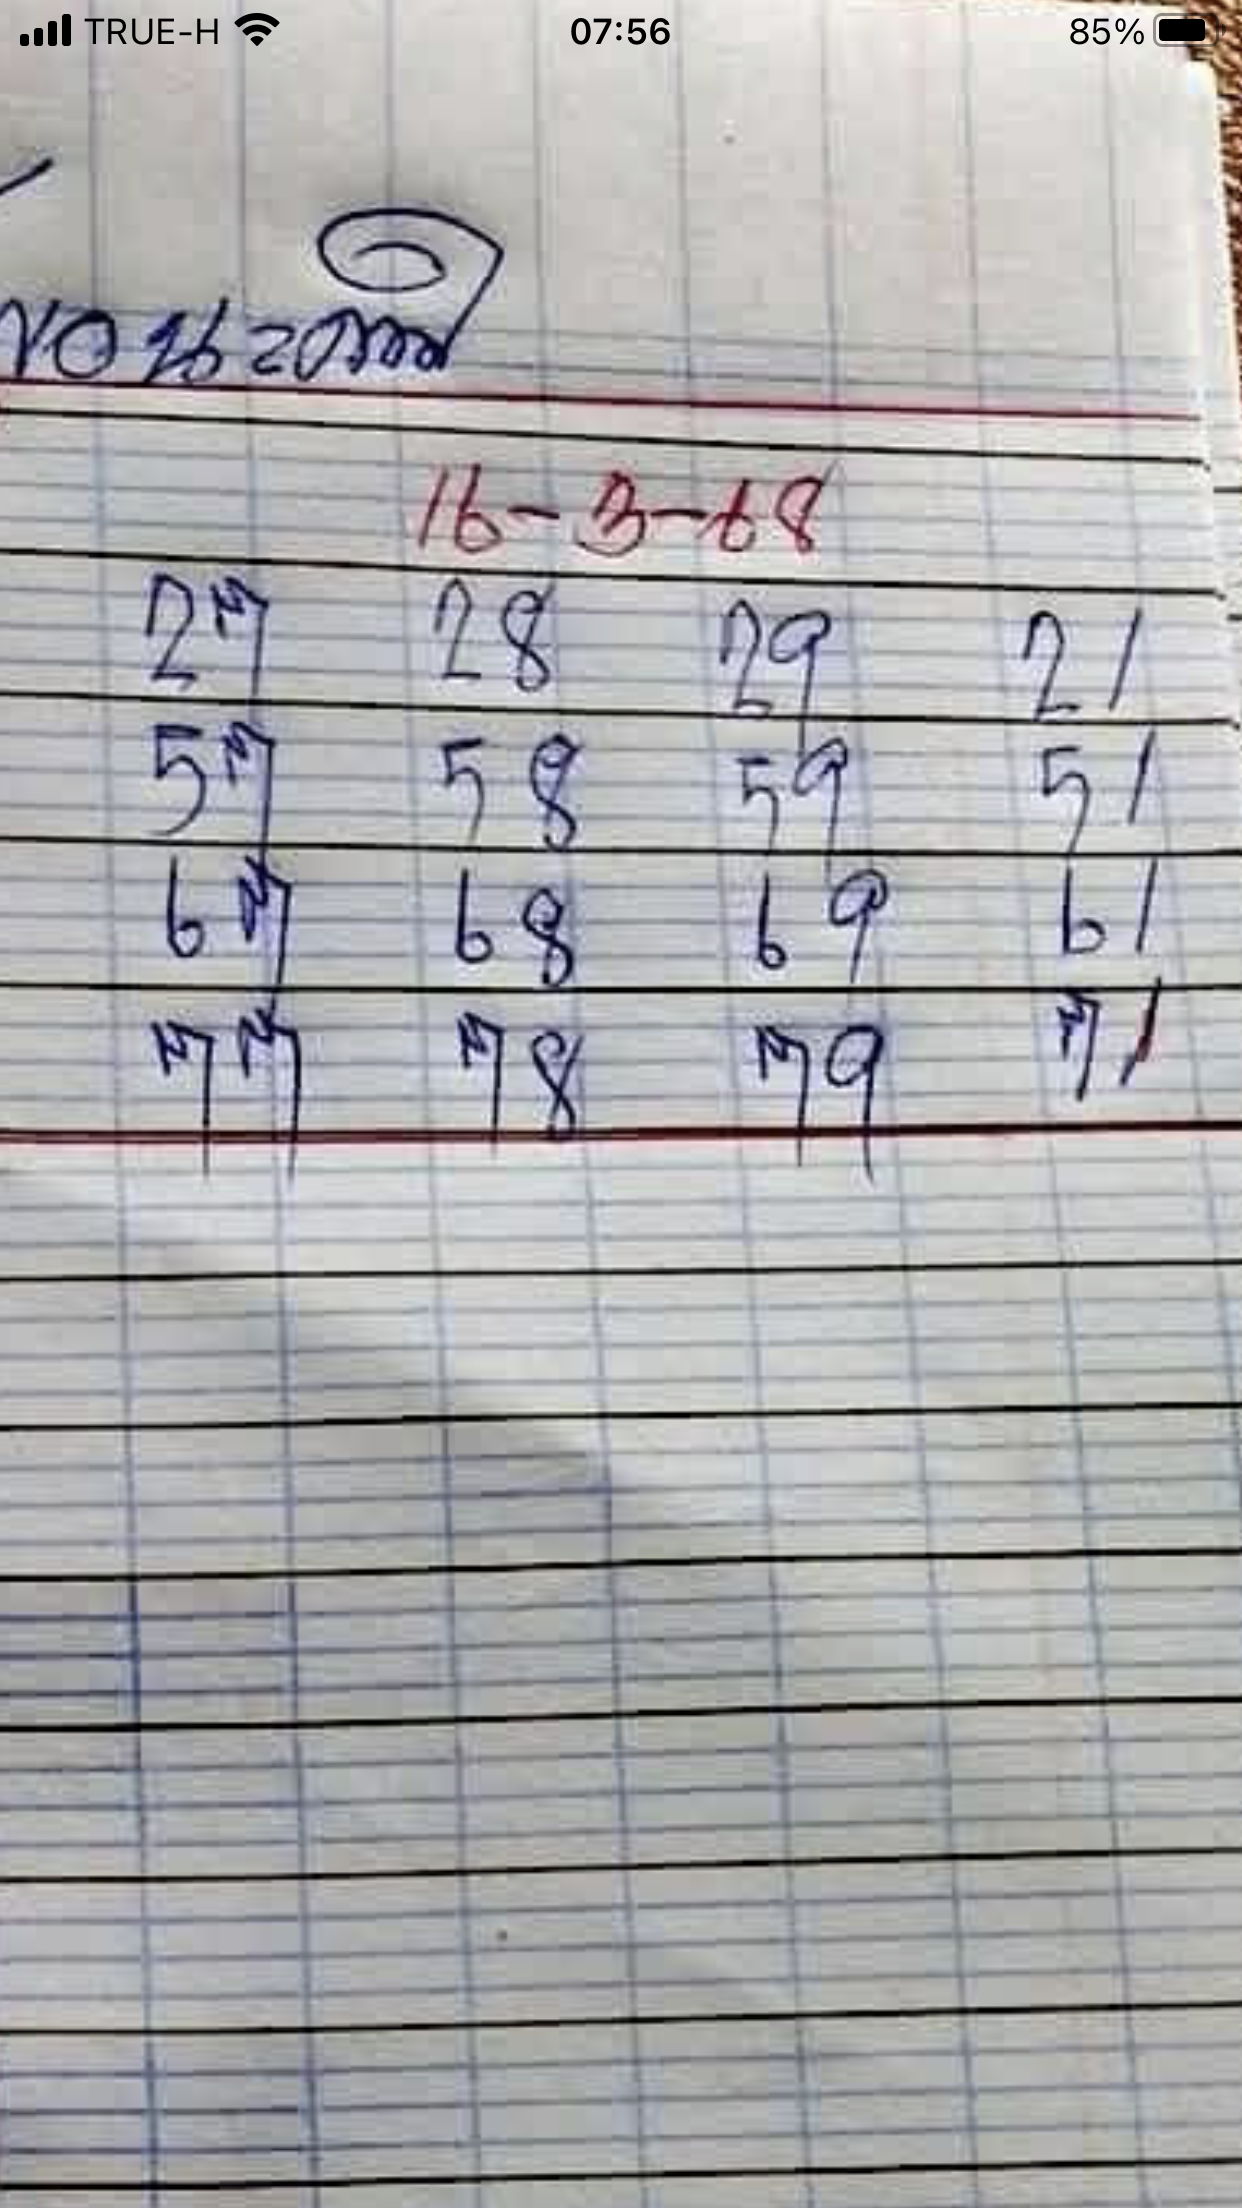 TRUE-H 07:56 85%
16-3-68
27 28 29 21
57 58 59 51
67 68 69 61
77 78 79 71